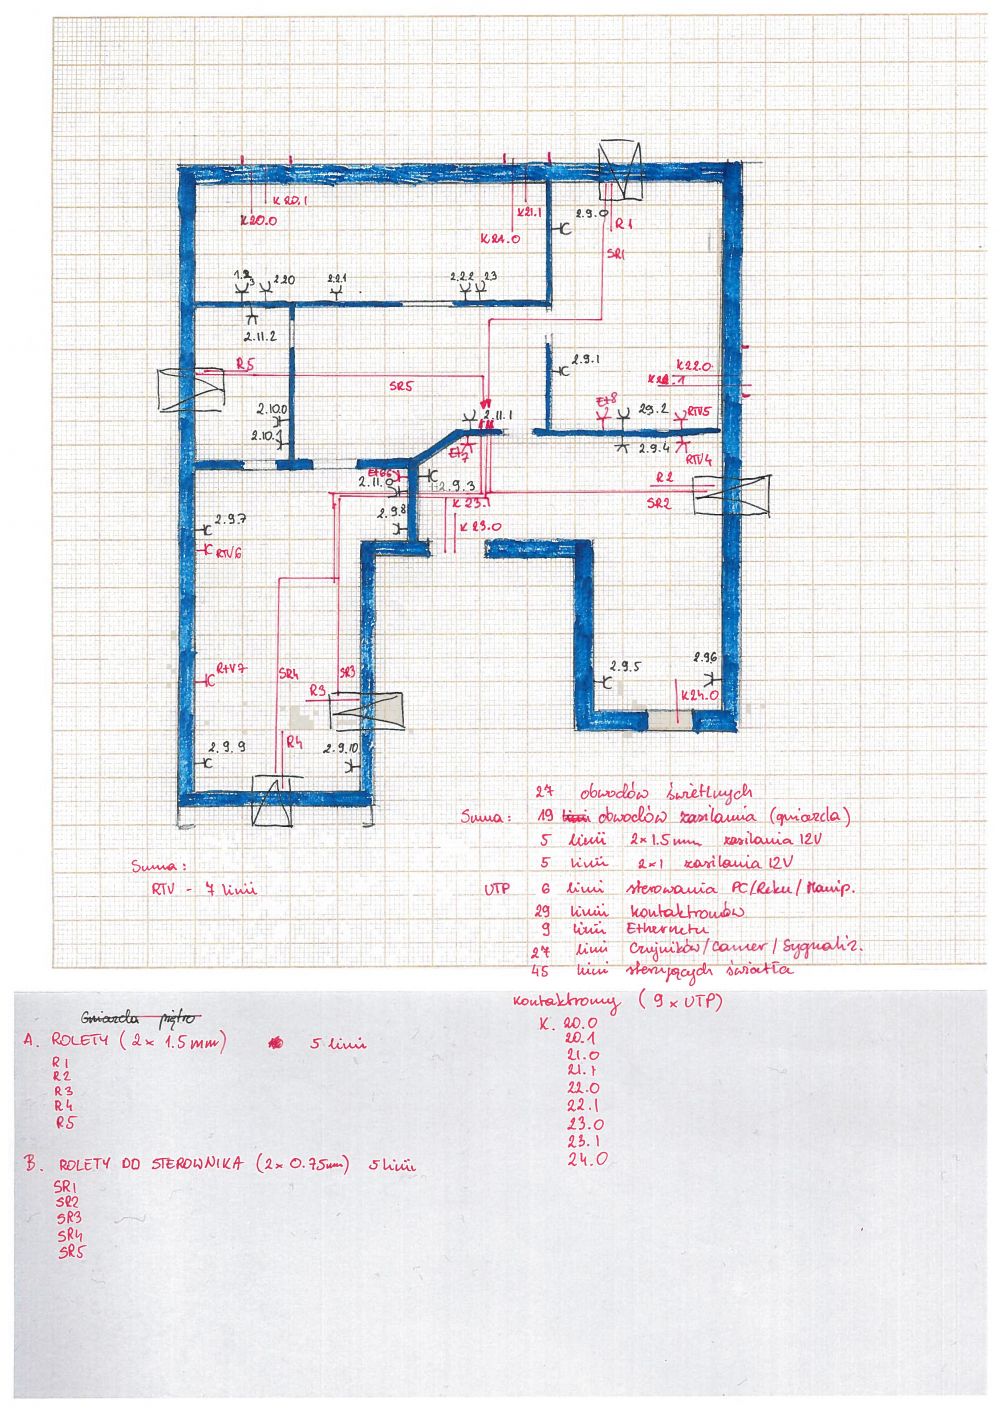 K 20.1
K20.0
K21.1
K21.0
2.9.0
R1
SR1
2.20
2.2.1
2.2.2
2.3
2.11.2
R5
SR5
2.9.1
K22.0
Et8
29.2
RTV5
2.10.0
2.10.1
2.11.1
Et7
2.9.4
RTV4
Et66
2.11.0
2.9.3
R2
SR2
K 23.1
2.9.8
K 23.0
2.9.7
RTV6
RTV7
SR4
SR3
R3
2.9.5
2.9.6
K24.0
2.9.9
R4
2.9.10
27 obwodów świetlnych
Suma: 19 obwodów zasilania (gniazda)
5 linii 2x1.5mm zasilania 12V
5 linii 2x1 zasilania 12V
UTP 6 linii sterowania PC/Reku/Manip.
29 linii kontaktronów
9 linii Ethernetu
27 linii Czujników/Camer/Sygnaliz.
45 linii sterujących światła
Suma:
RTV - 7 linii
Gniazda piętro
A. ROLETY (2x 1.5mm) 5 linii
R1
R2
R3
R4
R5
B. ROLETY DO STEROWNIKA (2x 0.75mm) 5 linii
SR1
SR2
SR3
SR4
SR5
Kontaktrony (9xUTP)
K. 20.0
20.1
21.0
21.1
22.0
22.1
23.0
23.1
24.0